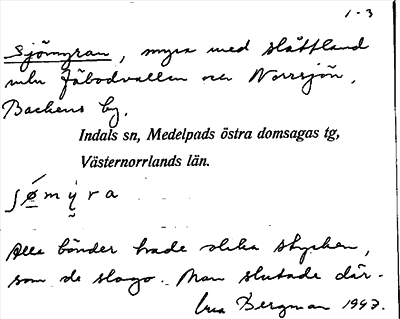 1-3
Sjömyran, myra med slåttland
mln Fäbodvallen och Norrsjön,
Backens by.
Indals sn, Medelpads östra domsagas tg,
Västernorrlands län.
ʃømýra
Alla bönder hade olika stycken,
som de slogo. Man slutade där.
Bergman 1943.